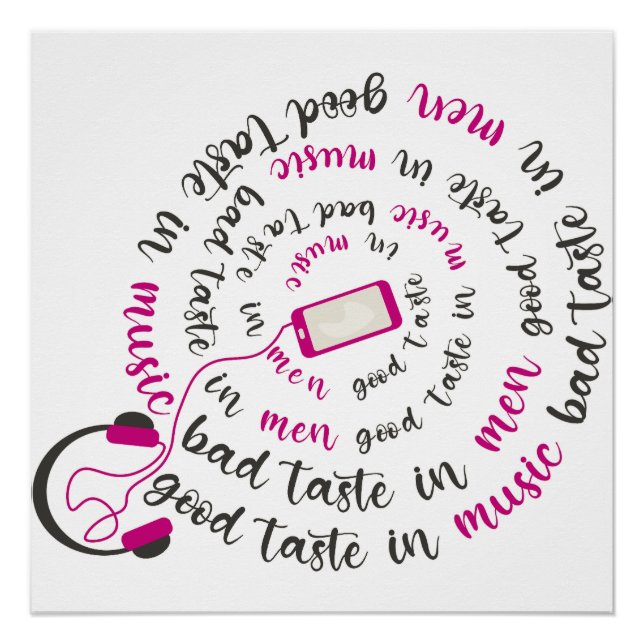 good taste in music
bad taste in men
good taste in music
bad taste in men
good taste in music
bad taste in men
good taste in music
bad taste in men
good taste in music